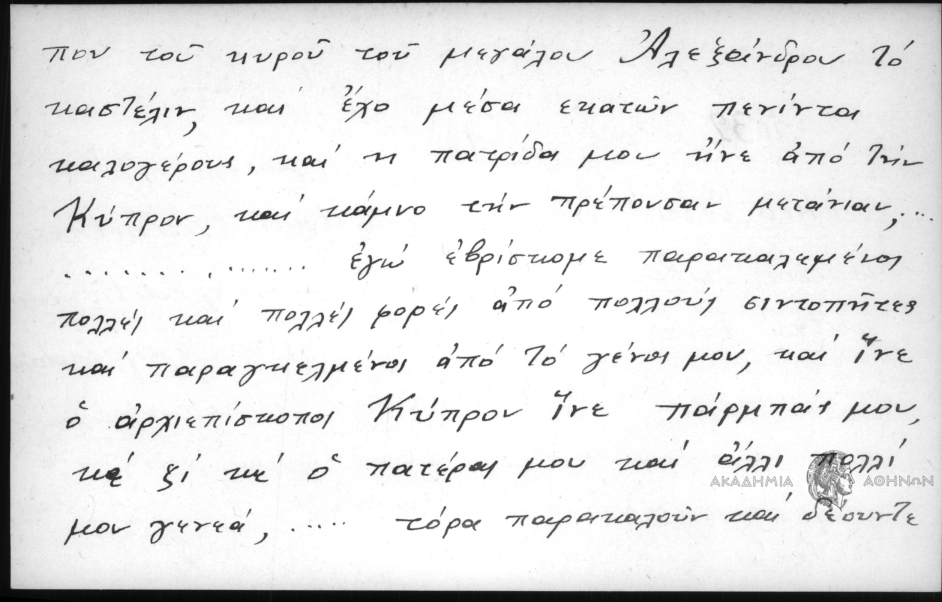 που τοῦ κυροῦ τοῦ μεγάλου Ἀλεξάνδρου τό
καστέλιν, καί ἔχο μέσα εκατῶν πενίντα
καλογέρους, καί η πατρίδα μου ἤνε ἀπό τήν
Κύπρον, καί κάμνο τήν πρέπουσαν μετάνιαν,...
......... ....... ἐγώ ἐβρίσκομε παρακαλεμένος
πολλές καί πολλές φορές ἀπό πολλούς σιντοπῆτες
καί παραγκελμένος ἀπό τό γένος μου, καί ἴνε
ὁ ἀρχιεπίσκοπος Κύπρου ἴνε πάρμπάς μου,
κέ ξί κέ ὁ πατέρας μου καί ἄλλι πολλί
μου γενεά, ..... τόρα παρακαλοῦν καί δέουντε
ΑΚΑΔΗΜΙΑ ΑΘΗΝΩΝ